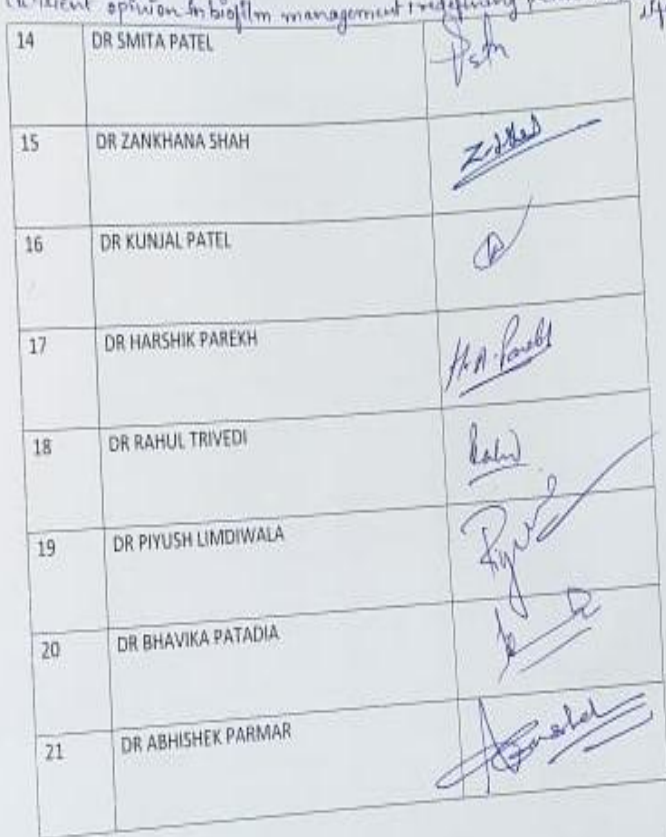 opinion in biofilm management : redefining
14 DR SMITA PATEL
15 DR ZANKHANA SHAH
16 DR KUNJAL PATEL
17 DR HARSHIK PAREKH H.A. Parekh
18 DR RAHUL TRIVEDI Rahul
19 DR PIYUSH LIMDIWALA
20 DR BHAVIKA PATADIA
21 DR ABHISHEK PARMAR